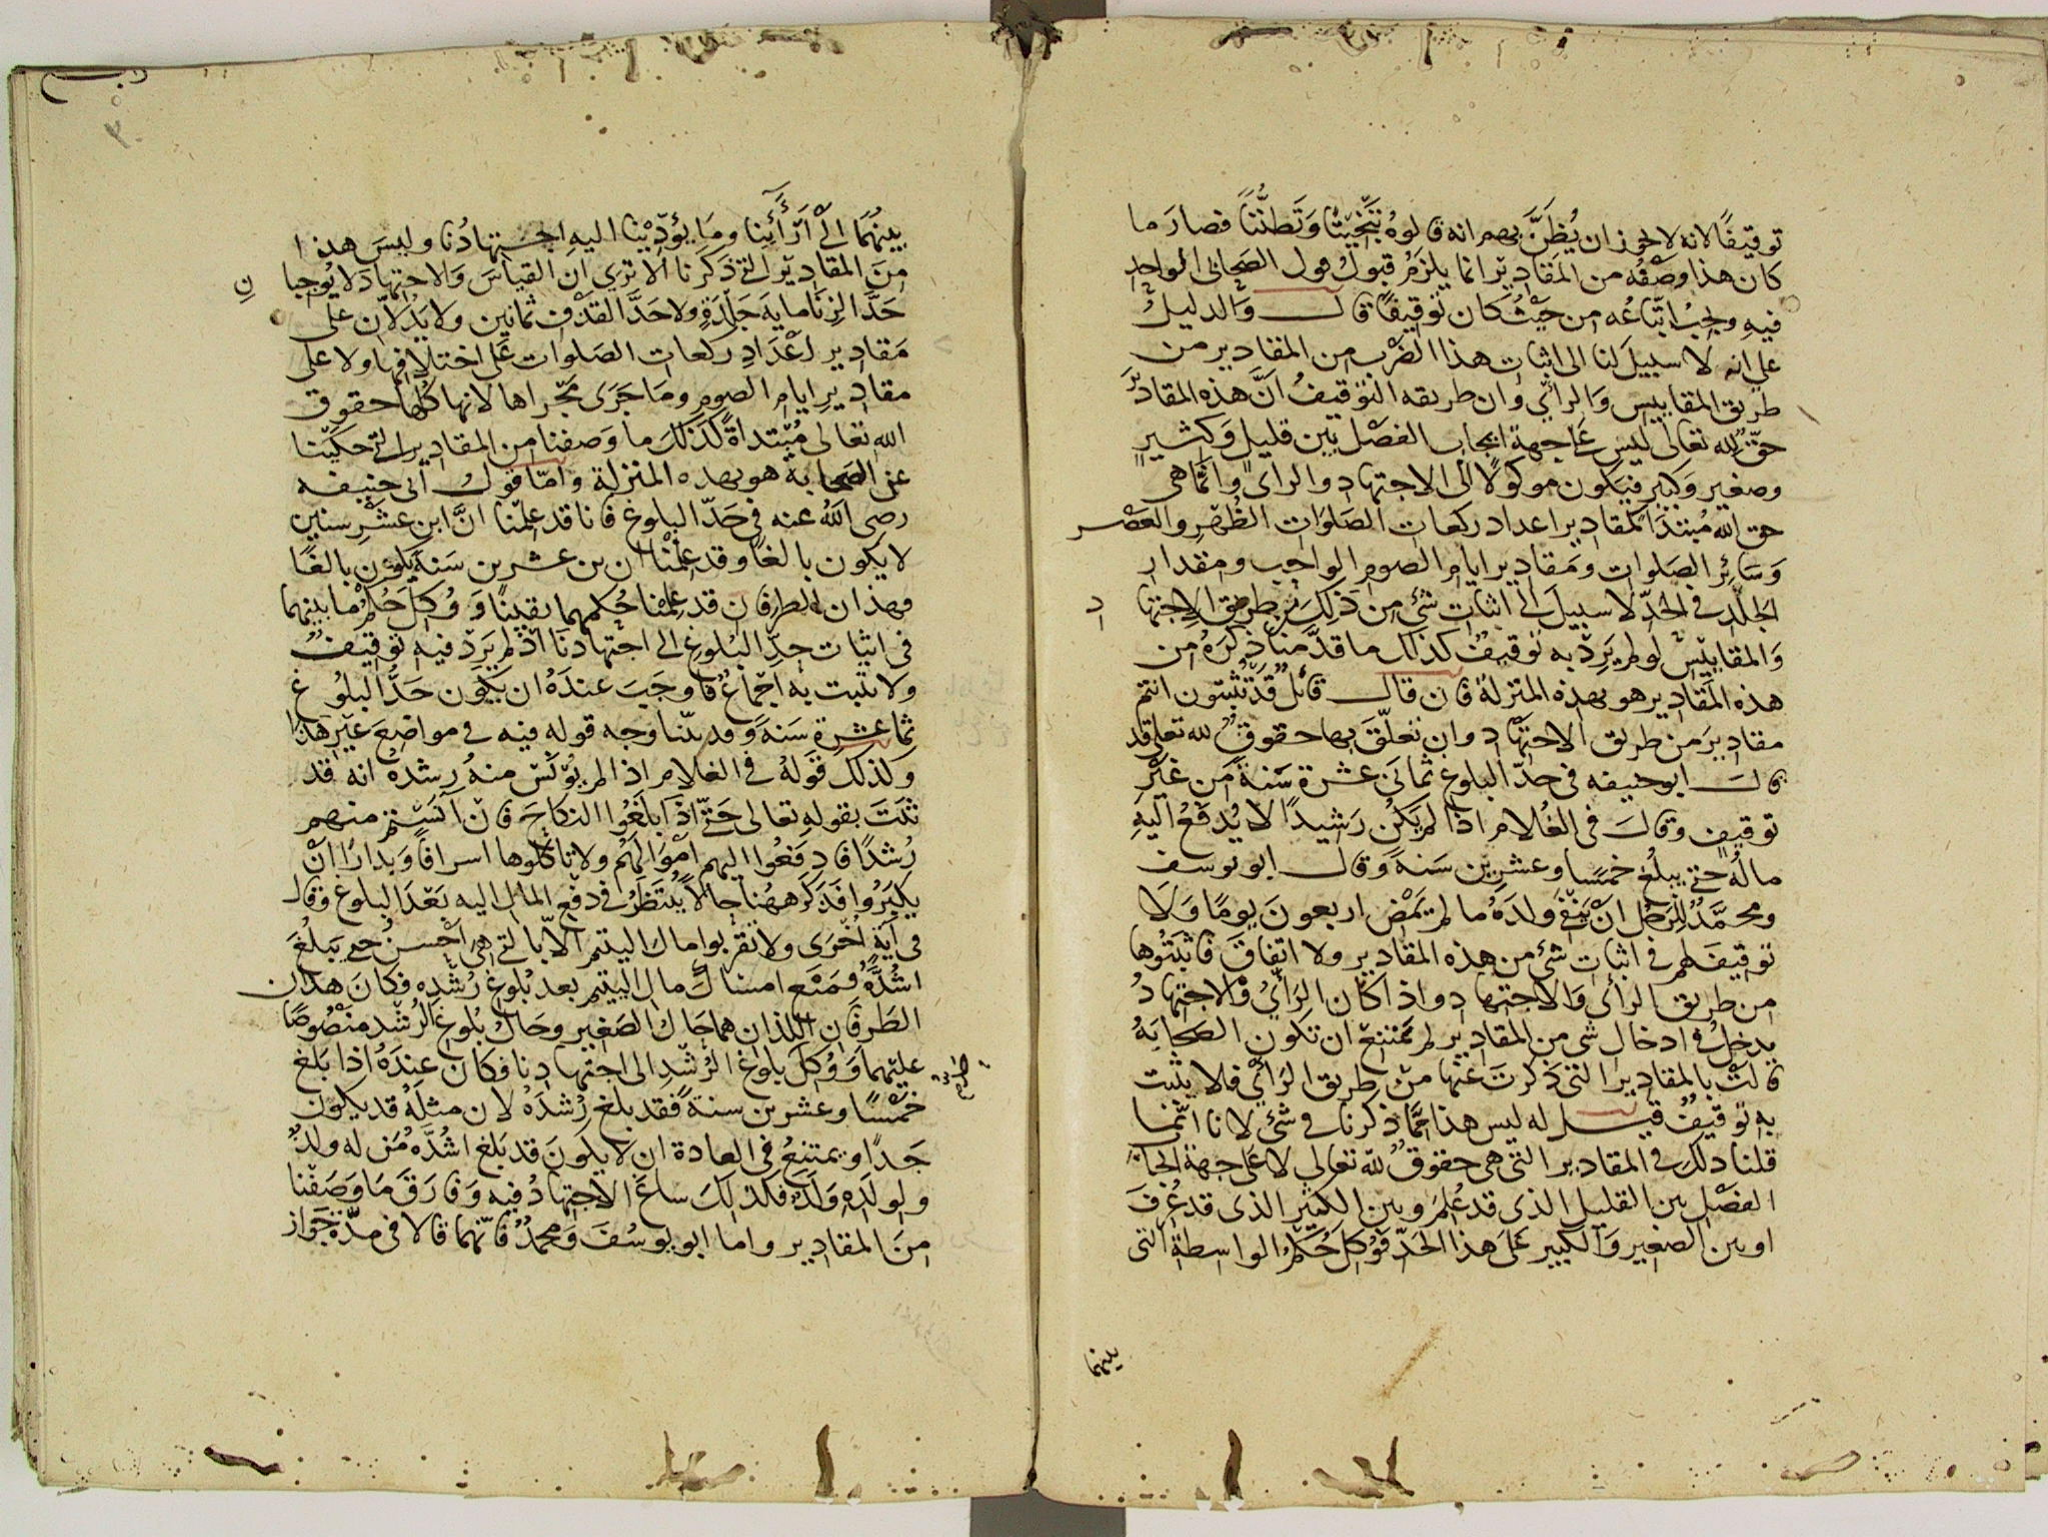 توقيفًا لانه لا يجوز ان يُظَنَّ بهم انه قالوهُ تَبْخِيتًا وَتَظنُّنًا فصارَ ما
كان هذا وصْفُه من المَقاديْرِ انما يلزمُ قبولُ قول الصَحابى الواحدِ
فيهِ ويجبُ اتّباعُه من حَيْثُ كان تَوقيفًا قال وَالدليلُ
على انه لا سبيلَ لنا الى اثباتِ هذا الضَرْبِ من المقادير من
طريق المقاييس وَالرأي وان طريقه التوْقيفُ انَّ هذه المقاديْرَ
حقٌّ لله تعالى ليس على جهة ايجاب الفصْل بَين قليلٍ وَكثيرٍ
وصغيرٍ وَكبيرٍ فيكون موكولًا الى الاجتهادِ والراىِ وانّما هى
حق الله مُبتدَأ كمقادير اعداد ركعات الصَلوات الظُهْرِ والعَصْر
وَسَائرُ الصَلواتِ وَمَقاديرِ ايام الصوم الواجب ومقدارِ
الجَلْدِ فى الحدّ لا سبيلَ الى اثباتِ شئ من ذَلِكَ من طريق الاجتها
د
وَالمقاييْسْ لو لم يَرِدْ به تَوقيفٌ كذلك ما قدَّمنا ذكرَهُ من
هذه المَقاديرِ هو بهذه المَنزلة فان قال قائلٌ قدْ تُثبتون انتم
مقاديرَ من طريق الاجتهاد وان تعلّق بها حقوقٌ لله تعالى قد
قال ابو حنيفه فى حدّ البلوغ ثمانَى عشرة سَنةً مَن غيْرِ
توقيفٍ وقالَ فى الغُلام اذا لم يَكُن رَشيدًا لا يُدفَعُ اليهِ
مالُه حتى يبلُغ خمسًا وعشرين سَنةً وَقال ابو يوسف
ومحمَّدٌ للرَجُل انْ يَنْفىَ ولدَهُ ما لم يَمْضِ اربعونَ يومًا وَلَا
توقيفَ لهم فى اثبات شئ من هذه المقادير ولا اتفاقَ فاثبَتُوها
من طريق الرأى وَالاجتهادِ واذا كان الرَأىُ وَالاجتهادُ
يدخلُ فى ادخال شى من المقادير لم يمْتنعْ ان تكون الصَحابَةُ
قالتْ بالمقادير التى ذكرتَ عنها منْ طريق الرَأي فلا يثبت
به توقيفٌ قيل له ليس هذا ممَّا ذكرنا فى شئ لانا انّما
قلنا ذلكَ فى المقادير التى هى حقوقٌ للّه تعالى لا على جهة ايجاب
الفصْلِ بين القليل الذى قد عُلِمَ وبين الكثير الذى قد عُرِفَ
او بين الصغير وَالكبير علىَ هذا الحَدّ فَوُكِلَ حُكْمُ الواسِطةِ التى
بينهما
بينهُما الى اٰرَأئِنا وما يؤدّيْنا اليهِ اجتهادُنا وليسَ هذا
منَ المقاديْرِ التى ذكرنا الا ترى ان القياسَ وَالاجتهادَ لا يُوجبا
نِ
حَدَّ الزِنَا ماية جَلدةٍ ولا حَدَّ القذْفِ ثمانين ولا يَدُلّان على
مَقاديرِ اعْدَادِ ركعات الصَلوات على اختلافها ولا على
مقاديرِ ايام الصومِ ومَا جَرَى مَجْراها لانها كُلّها حقوق
الله تعالى مُبْتداةٌ كذلكَ ما وَصفنا من المقادير التى حكيْنا
عن الصَحابة هو بهده المنزلة وامّا قول ابى حنيفه
رضى اللهُ عنه فى حَدّ البلوغ فانا قد عَلِمْنا انَّ ابن عَشْرِ سنين
لا يكون بالغًا وقد عَلِمْنا ان بن عشرين سَنةً يكون بالغًا
فهذان الطرفان قد عَلِمْنا حُكمهما يقينًا وَوُكِلَ حُكمُ ما بينهما
فى اثبات حدِّ البُلوغِ الى اجتهادنَا اذْ لم يَرِدْ فيهِ توقيفٌ
ولا يثبت به اجْماعٌ فاوجَبَ عندهُ ان يَكُون حَدُّ البلوُغ
ثما عشرة سَنةً وقد بيّنا وجه قوله فيه فى مواضِعَ غيْرِ هَذا
وَكذلك قوله فى الغلام اذا لم يُوْنَسْ منهُ رشدهُ انه قد
ثبَتَ بقوله تعالى حَتَّى اذا بلَغُوا النكاحَ فان آنَسْتم منهم
رُشدًا فادفعُوا اليهم اَمْوَالَهُم ولا تاكُلوها اسرافًا وَبدارًا اَنْ
يكبَرُوا فذكَرَ ههُنا حالًا يُنتَظرُ فى دفعِ المال اليه بَعْدَ البلوغ وقال
فى آيَةٍ اُخْرَى ولا تقرَبوا مال اليتيم الّا بالتى هى اَحْسنُ حتى يَبلُغَ
اشُدَّهُ فَمَنَع امساكَ مال اليتيم بعد بُلوغِ رُشْدِه فكانَ هذان
الطَرفَانِ اللذان هما حَال الصَغيرِ وحَالُ بُلوغِ الرُشْدِ منصُوصًا
عليْهما وَوُكِلَ بلوغ الرُشْدِ الى اجتهادنا فكان عندَهُ اذا بَلغ
خمْسًا وعشرين سنةً فقد بلغ رُشدَهُ لان مثلَهُ قد يكون
جَدًا ويمتنعُ فى العادة ان لا يكونَ قد بَلغ اشُدَّهُ مَن له ولدٌ
ولولدِهِ وَلدٌ فكذلكَ ساغَ الاجتهادُ فيه وَفارَقَ مَا وَصَفْنا
منَ المقادير واما ابو يوسُفَ وَمحمدٌ فانّهما قالا فى مدّة جَواز